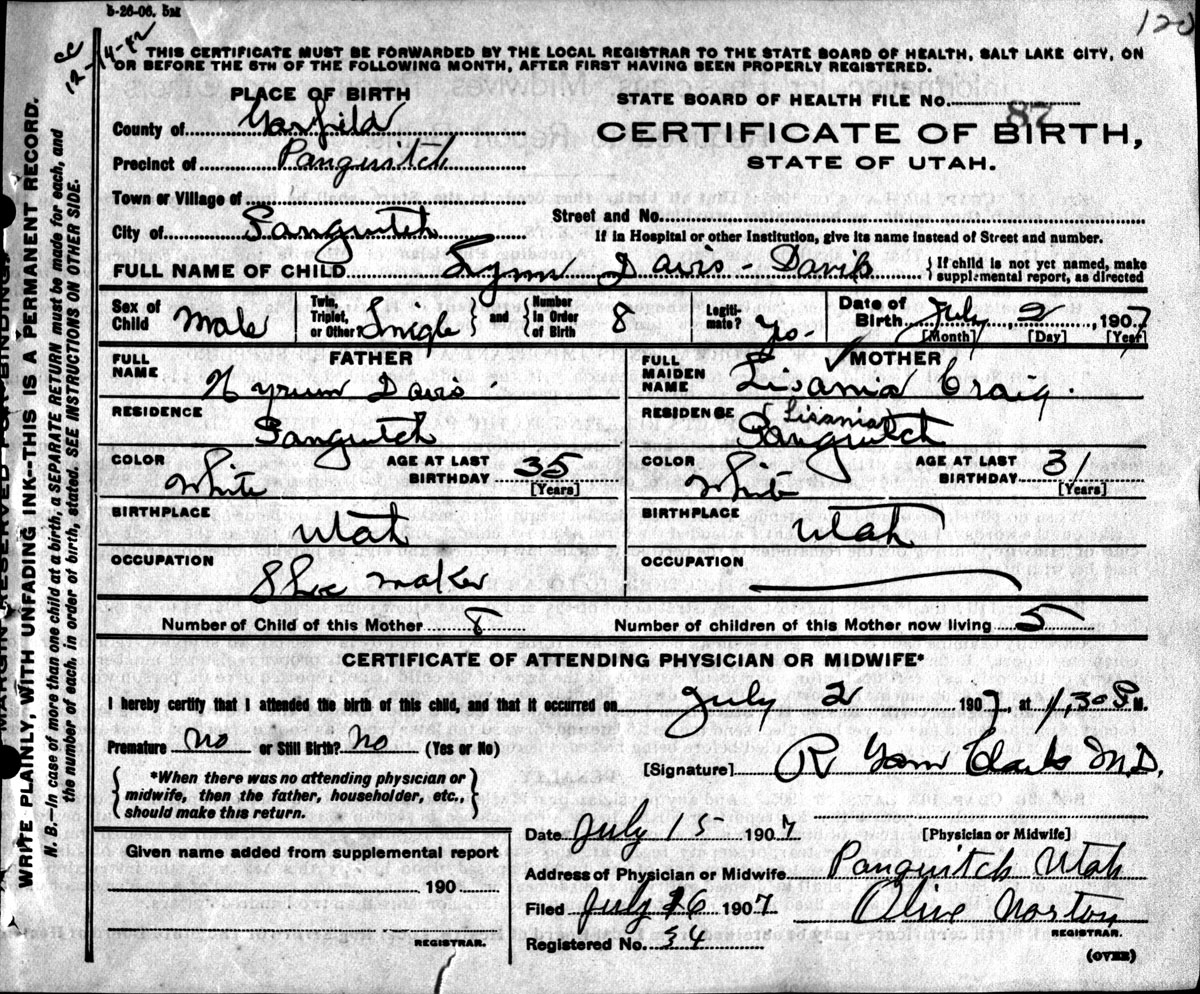 5-26-06. 5M
120
CC
12-14-82
THIS CERTIFICATE MUST BE FORWARDED BY THE LOCAL REGISTRAR TO THE STATE BOARD OF HEALTH, SALT LAKE CITY, ON
OR BEFORE THE 5TH OF THE FOLLOWING MONTH, AFTER FIRST HAVING BEEN PROPERLY REGISTERED.
PLACE OF BIRTH
STATE BOARD OF HEALTH FILE NO. 87
County of Garfield
CERTIFICATE OF BIRTH,
Precinct of Panguitch
STATE OF UTAH.
Town or Village of
Street and No.
City of Panguitch
If in Hospital or other Institution, give its name instead of Street and number.
FULL NAME OF CHILD Lynn Davis - Davis
{ If child is not yet named, make
supplemental report, as directed
Sex of Child Male Twin, Triplet, or Other? Single } and { Number in Order of Birth 8 Legitimate? Yes Date of Birth July 2, 1907
[Month] [Day] [Year]
FATHER
MOTHER
FULL NAME Hyrum Davis
FULL MAIDEN NAME Lisania Craig
(Lisania)
RESIDENCE Panguitch
RESIDENCE Panguitch
COLOR White AGE AT LAST BIRTHDAY 35 [Years]
COLOR White AGE AT LAST BIRTHDAY 31 [Years]
BIRTHPLACE Utah
BIRTHPLACE Utah
OCCUPATION Shoe maker
OCCUPATION
Number of Child of this Mother 8 Number of children of this Mother now living 5
CERTIFICATE OF ATTENDING PHYSICIAN OR MIDWIFE*
I hereby certify that I attended the birth of this child, and that it occurred on July 2 1907, at 1,30 P. M.
Premature No or Still Birth? No (Yes or No)
{ *When there was no attending physician or
midwife, then the father, householder, etc.,
should make this return. }
[Signature] R Clark M.D.
Date July 15 1907 [Physician or Midwife]
Given name added from supplemental report
Address of Physician or Midwife Panguitch Utah
190
Filed July 16 1907 Olive Norton
REGISTRAR.
REGISTRAR.
Registered No. 34
(OVER)
MARGIN RESERVED FOR BINDING.
WRITE PLAINLY, WITH UNFADING INK--THIS IS A PERMANENT RECORD.
N. B.—In case of more than one child at a birth, a SEPARATE RETURN must be made for each, and
the number of each, in order of birth, stated. SEE INSTRUCTIONS ON OTHER SIDE.